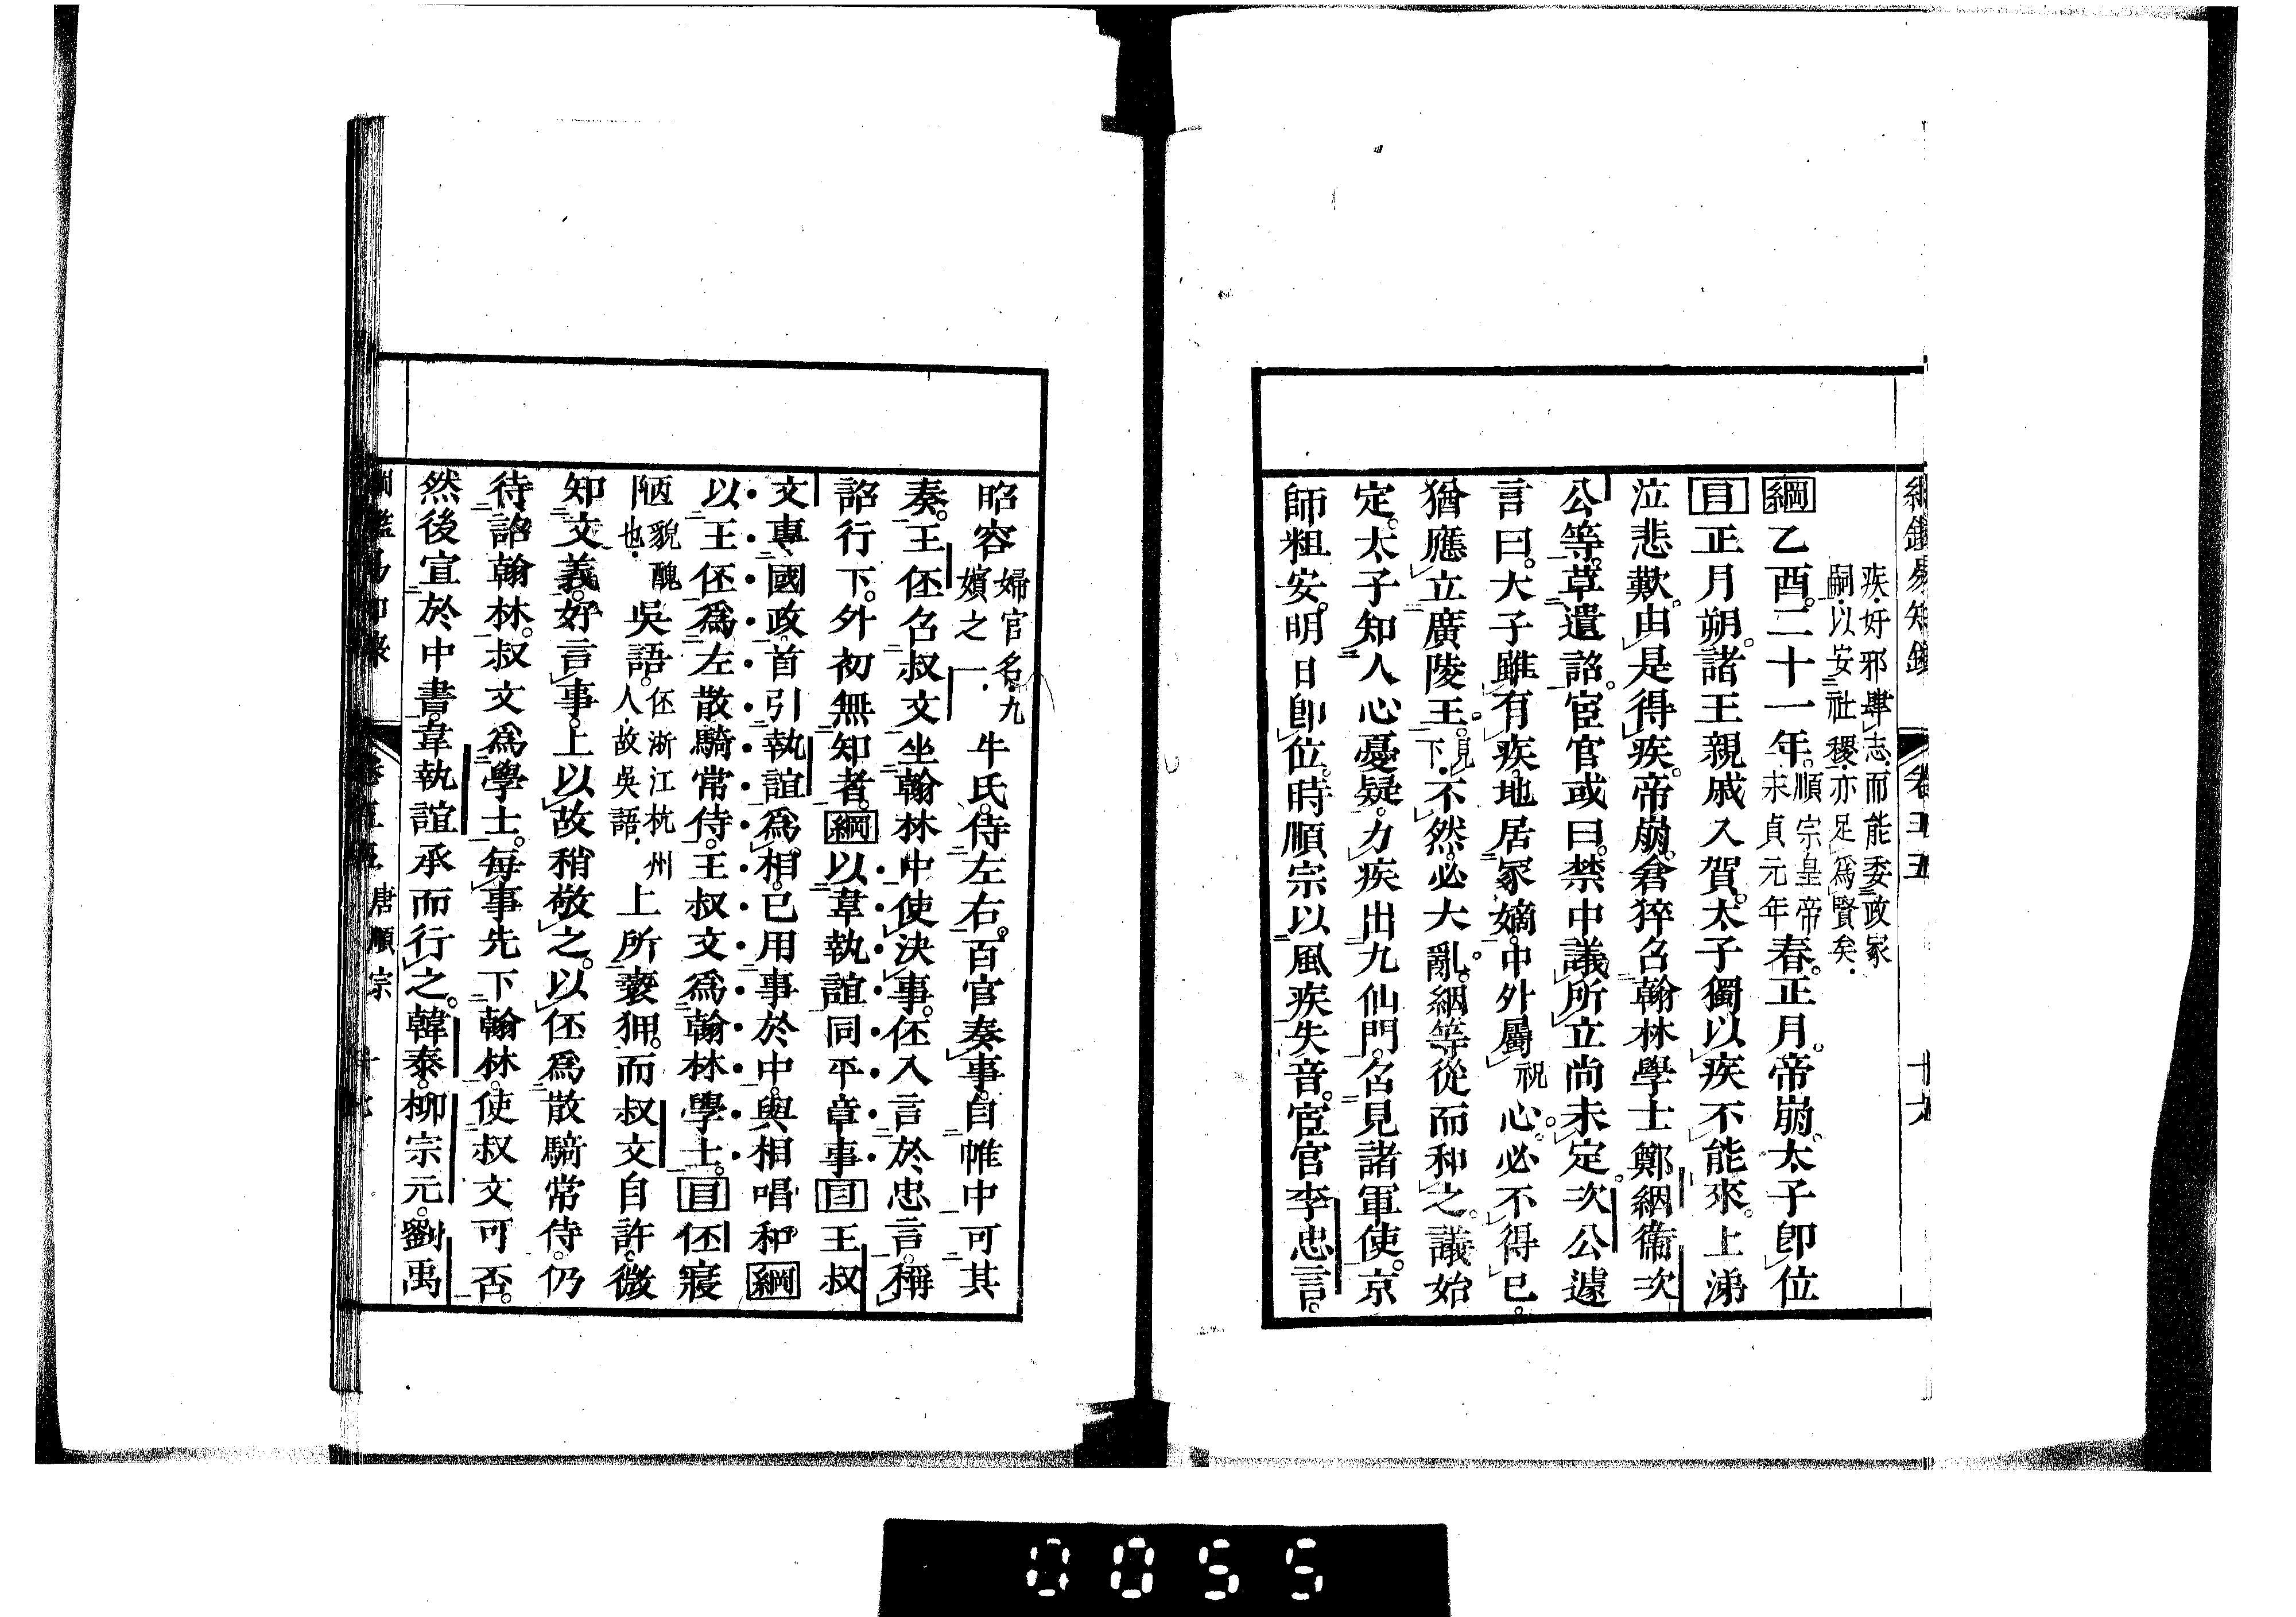 綱鑑易知錄 卷五五 十九
疾好邪肆志而能委政冡
嗣以安社稷亦足爲賢矣
綱乙酉。二十一年。順宗皇帝
永貞元年春。正月。帝崩。太子卽位
目正月朔。諸王親戚入賀。太子獨以疾不能來。上涕
泣悲歎。由是得疾。帝崩。倉猝召翰林學士鄭絪衞次
公等。草遺詔。宦官或曰。禁中議所立尚未定。次公遽
言曰。太子雖有疾。地居冡嫡。中外屬祝心。必不得已。
猶應立廣陵王。見下不然。必大亂。絪等從而和之。議始
定。太子知人心憂疑。力疾出九仙門。召見諸軍使。京
師粗安。明日卽位。時順宗以風疾失音。宦官李忠言。
昭容婦官名九
嬪之一牛氏。侍左右。百官奏事。自帷中可其
奏。王伾召叔文坐翰林中使決事。伾入言於忠言。稱
詔行下。外初無知者。綱以韋執誼同平章事目王叔
文專國政。首引執誼爲相。己用事於中。與相唱和。綱
以王伾爲左散騎常侍。王叔文爲翰林學士。目伾寢
陋貌醜
也吳語。伾浙江杭州
人故吳語上所褻狎。而叔文自許。微
知文義。好言事。上以故稍敬之。以伾爲散騎常侍。仍
待詔翰林。叔文爲學士。每事先下翰林。使叔文可否。
然後宣於中書。韋執誼承而行之。韓泰。柳宗元。劉禹
綱鑑易知錄 卷五五 唐順宗